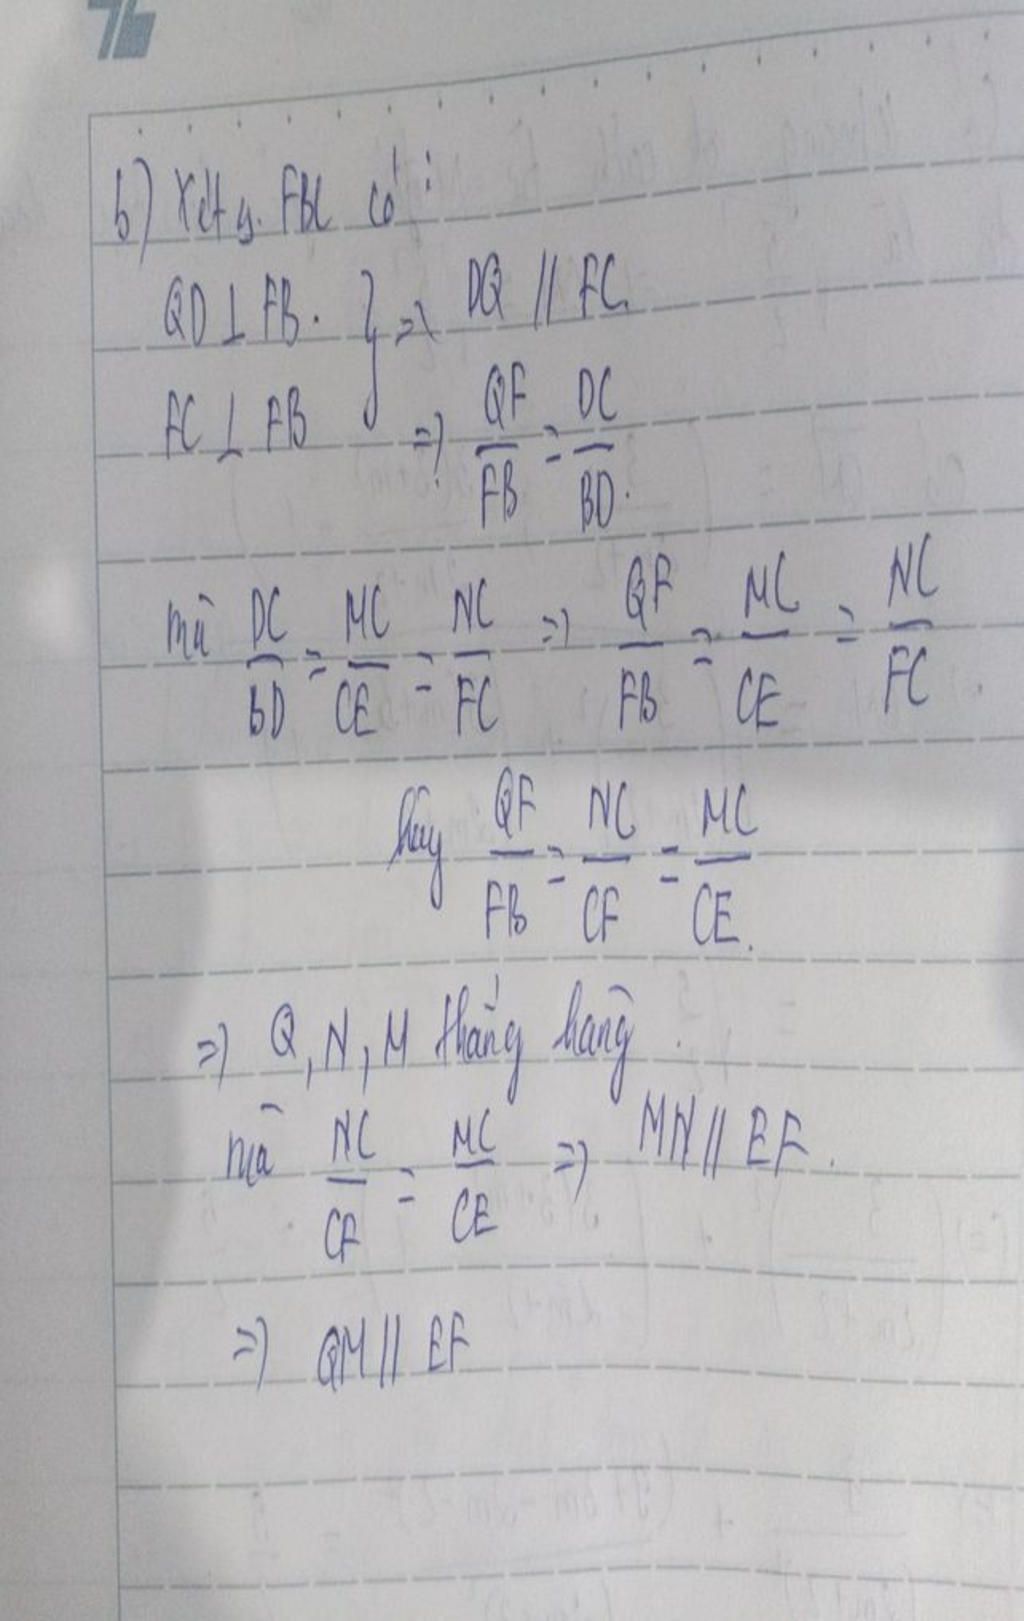 b) Xét y. FBC có:
QD ⊥ FB. } => DQ // FC.
FC ⊥ AB => QF/FB = DC/BD.
mà DC/BD = MC/CE = NC/FC => QF/FB = MC/CE = NC/FC.
hay QF/FB = NC/CF = MC/CE.
=> Q, N, M thẳng hàng.
mà NC/CF = MC/CE => MN // EF.
=> QM // EF